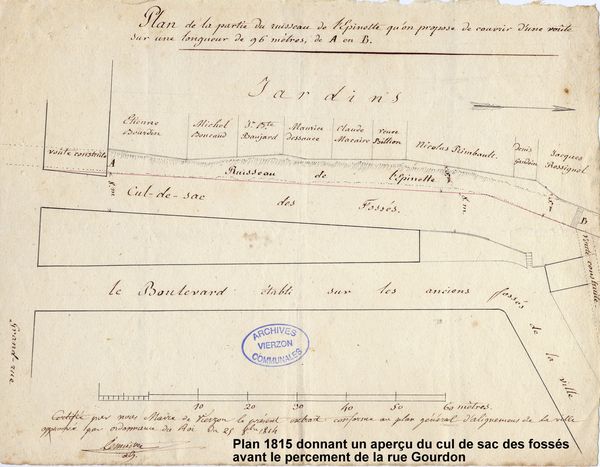 Plan de la partie du ruisseau de l'Epinette qu'on propose de couvrir d'une voûte
sur une longueur de 96 mètres, de A en B.
Jardins
Etienne
Bourdin
Michel
Boucaud
Jn Bte
Baujard
Maurice
dessauce
Claude
Macaire
veuve
Bullion
Nicolas Rimbault.
Denis
Jacques
Rossignol
voute construite
A
Ruisseau de l'Epinette
B
voute construite.
Cul-de-sac des Fossés.
8 m
8 m
le Boulevard établi sur les anciens fossés de la ville
Grand rue
ARCHIVES
VIERZON
COMMUNALES
10 20 30 40 50 60 mètres.
Certifié par nous Maire de Vierzon le présent extrait conforme au plan général d'alignement de la ville
approuvé par ordonnance du Roi du 25 1814
Plan 1815 donnant un aperçu du cul de sac des fossés
avant le percement de la rue Gourdon